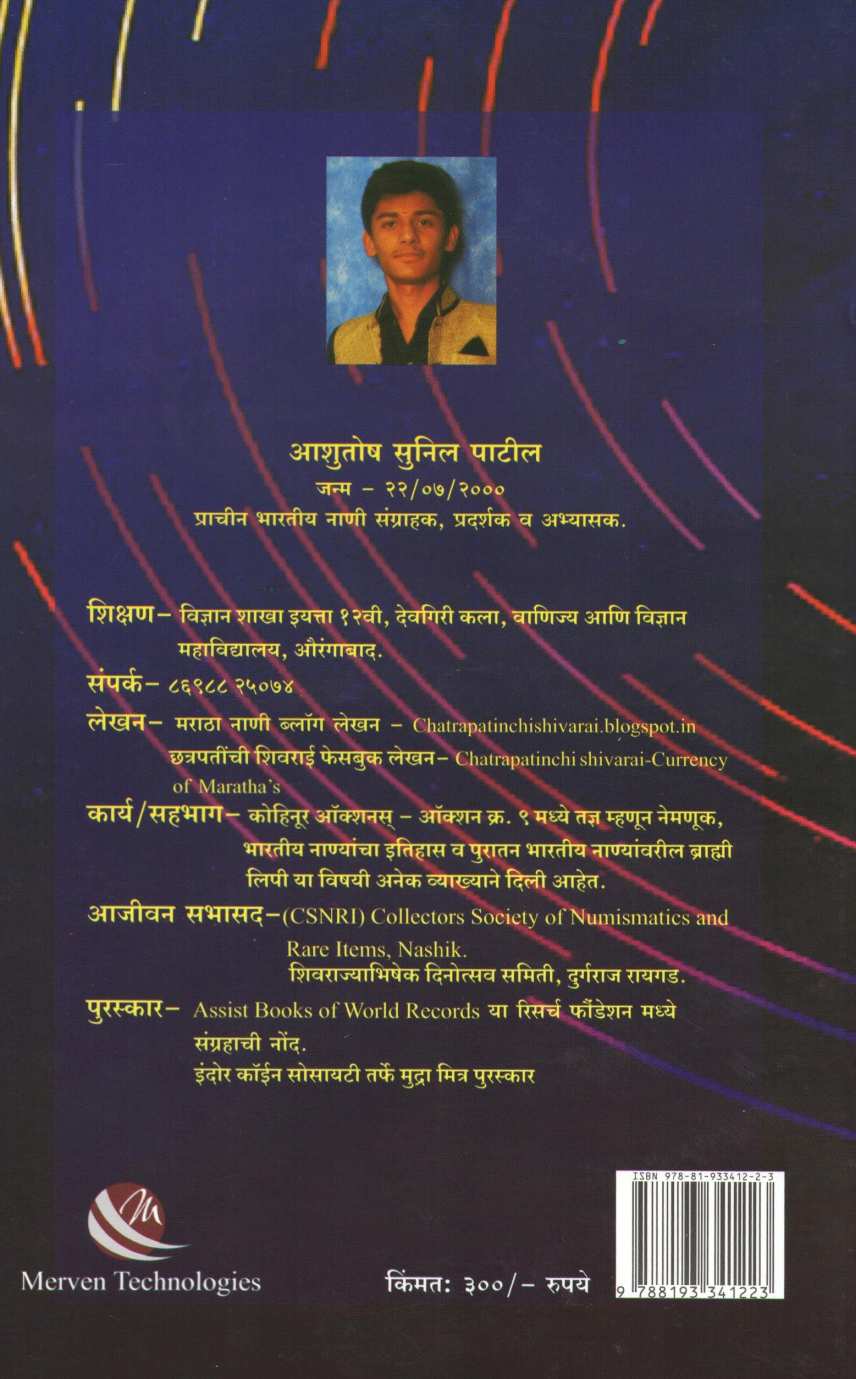 आशुतोष सुनिल पाटील
जन्म – २२/०७/२०००
प्राचीन भारतीय नाणी संग्राहक, प्रदर्शक व अभ्यासक.
शिक्षण– विज्ञान शाखा इयत्ता १२वी, देवगिरी कला, वाणिज्य आणि विज्ञान
महाविद्यालय, औरंगाबाद.
संपर्क– ८६९८८ २५०७४
लेखन– मराठा नाणी ब्लॉग लेखन – Chatrapatinchishivarai.blogspot.in
छत्रपतींची शिवराई फेसबुक लेखन– Chatrapatinchi shivarai-Currency
of Maratha's
कार्य/सहभाग– कोहिनूर ऑक्शनस् – ऑक्शन क्र. ९ मध्ये तज्ञ म्हणून नेमणूक,
भारतीय नाण्यांचा इतिहास व पुरातन भारतीय नाण्यांवरील ब्राह्मी
लिपी या विषयी अनेक व्याख्याने दिली आहेत.
आजीवन सभासद–(CSNRI) Collectors Society of Numismatics and
Rare Items, Nashik.
शिवराज्याभिषेक दिनोत्सव समिती, दुर्गराज रायगड.
पुरस्कार– Assist Books of World Records या रिसर्च फौंडेशन मध्ये
संग्रहाची नोंद.
इंदोर कॉईन सोसायटी तर्फे मुद्रा मित्र पुरस्कार
m
Merven Technologies
किंमत: ३००/– रुपये
ISBN 978-81-933412-2-3
9 788193 341223